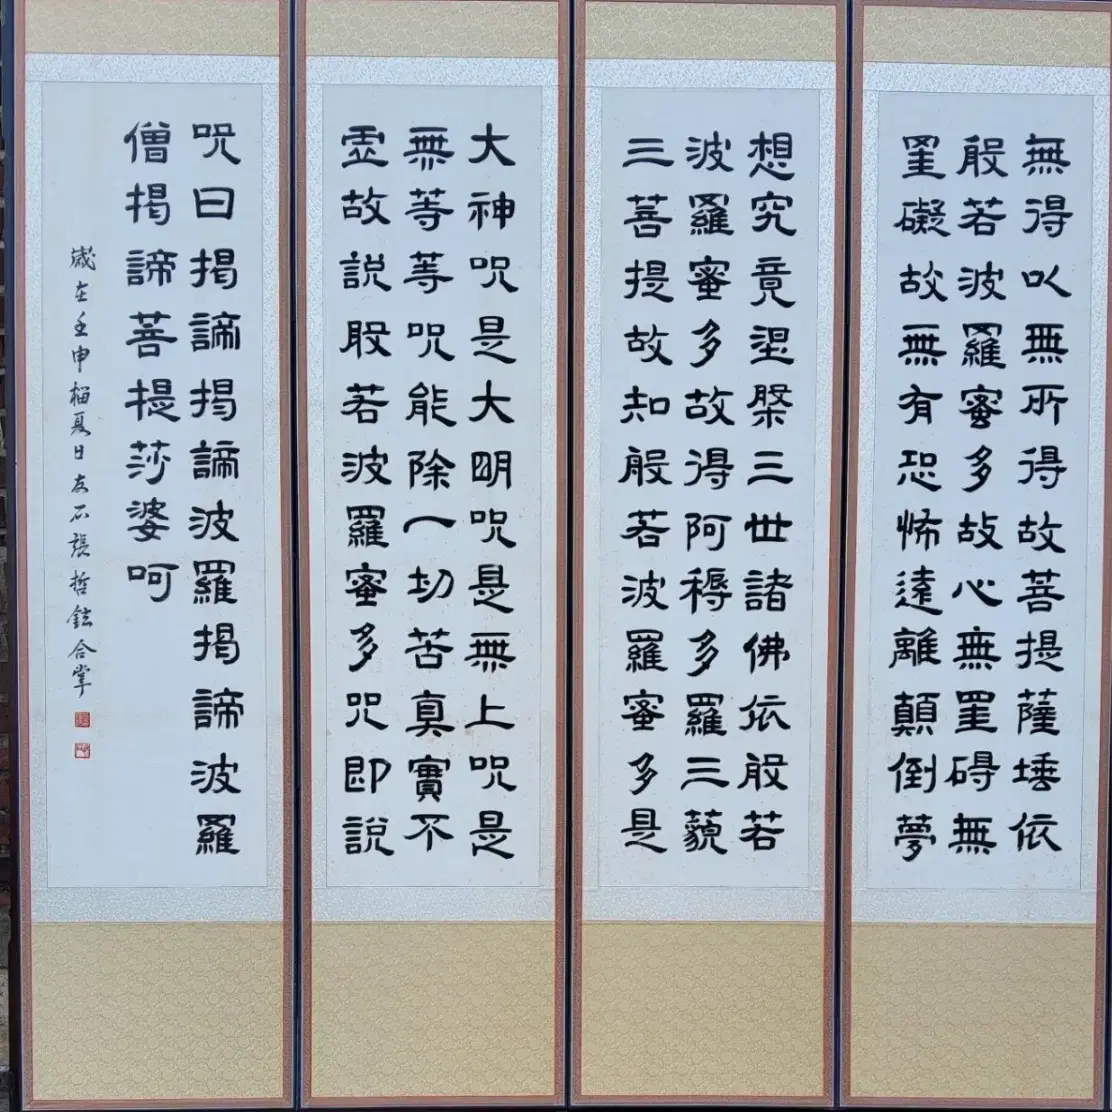 無得以無所得故菩提薩埵依
般若波羅蜜多故心無罣碍無
罣礙故無有恐怖遠離顛倒夢
想究竟涅槃三世諸佛依般若
波羅蜜多故得阿耨多羅三藐
三菩提故知般若波羅蜜多是
大神呪是大明呪是無上呪是
無等等呪能除一切苦真實不
虛故説般若波羅蜜多呪即説
呪曰揭諦揭諦波羅揭諦波羅
僧揭諦菩提莎婆呵
歲在壬申榴夏日友石張哲鉉合掌